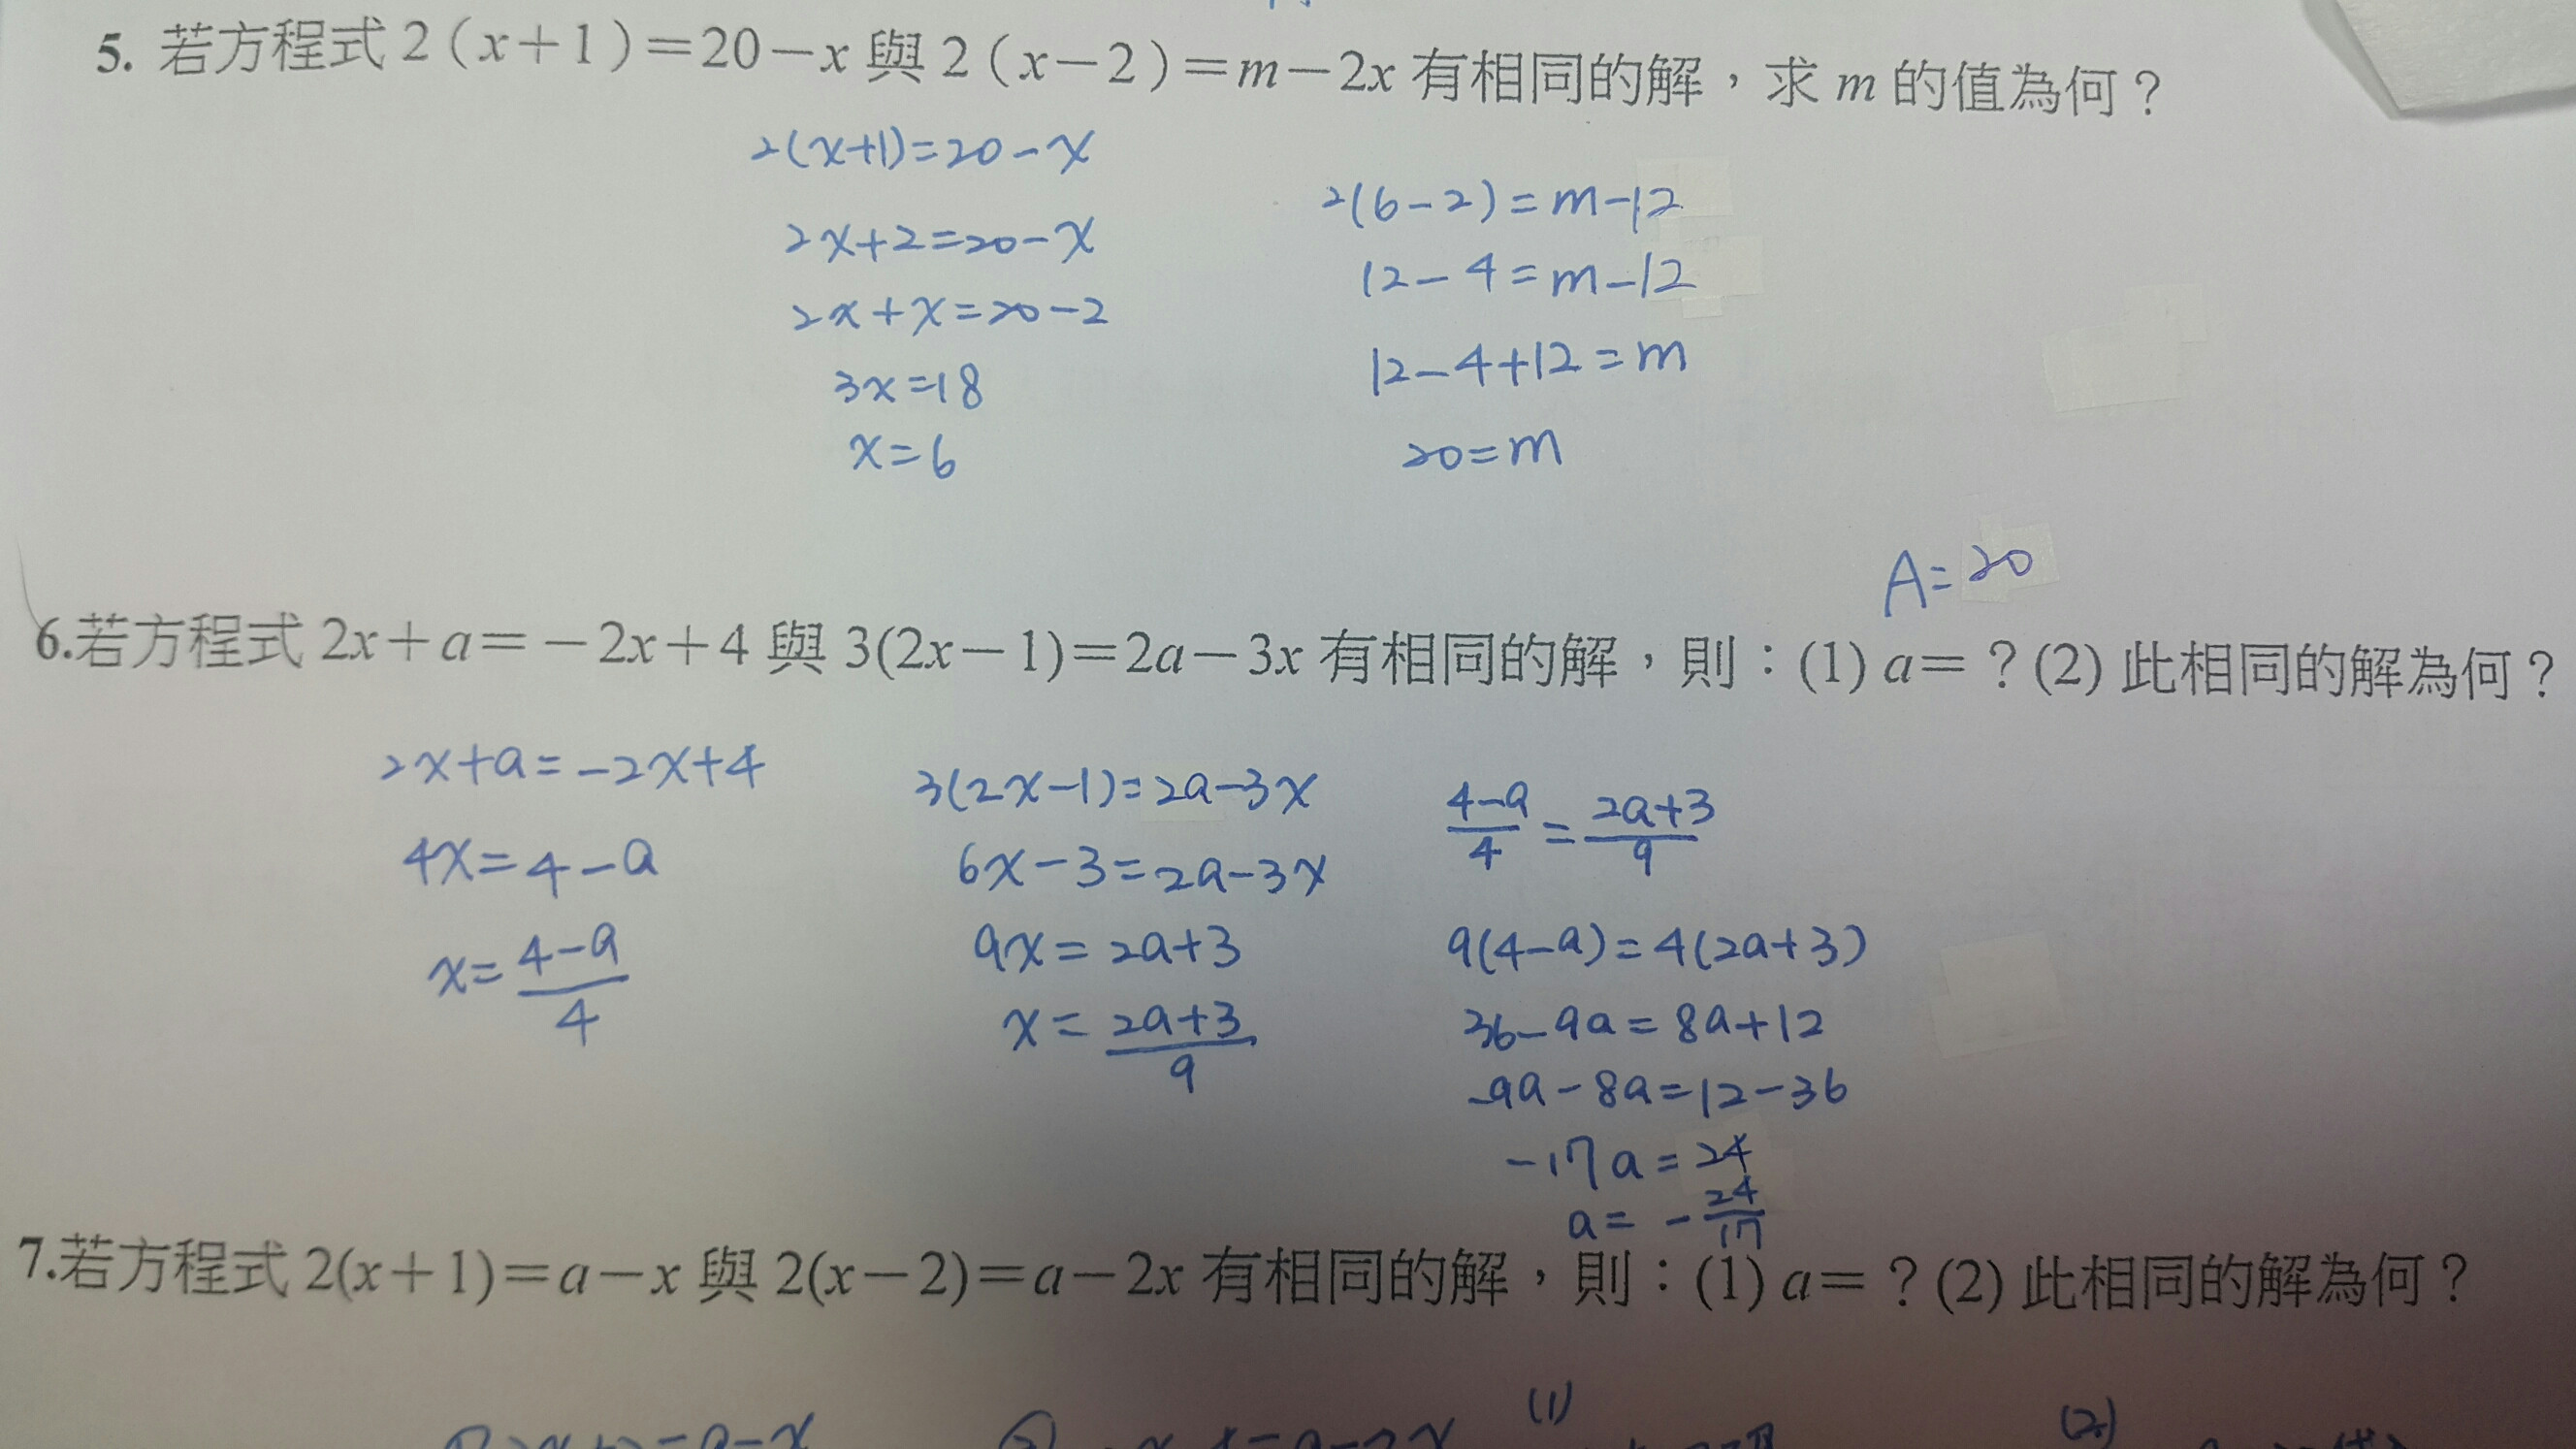 5. 若方程式 2（x＋1）＝20－x 與 2（x－2）＝m－2x 有相同的解，求 m 的值為何？
2(x+1)=20-x
2x+2=20-x
2x+x=20-2
3x=18
x=6
2(6-2)=m-12
12-4=m-12
12-4+12=m
20=m
A=20
6.若方程式 2x＋a＝－2x＋4 與 3(2x－1)＝2a－3x 有相同的解，則：(1) a＝？(2) 此相同的解為何？
2x+a=-2x+4
4x=4-a
x=\frac{4-a}{4}
3(2x-1)=2a-3x
6x-3=2a-3x
9x=2a+3
x=\frac{2a+3}{9}
\frac{4-a}{4}=\frac{2a+3}{9}
9(4-a)=4(2a+3)
36-9a=8a+12
-9a-8a=12-36
-17a=24
a=-\frac{24}{17}
7.若方程式 2(x＋1)＝a－x 與 2(x－2)＝a－2x 有相同的解，則：(1) a＝？(2) 此相同的解為何？
(1)
(2)